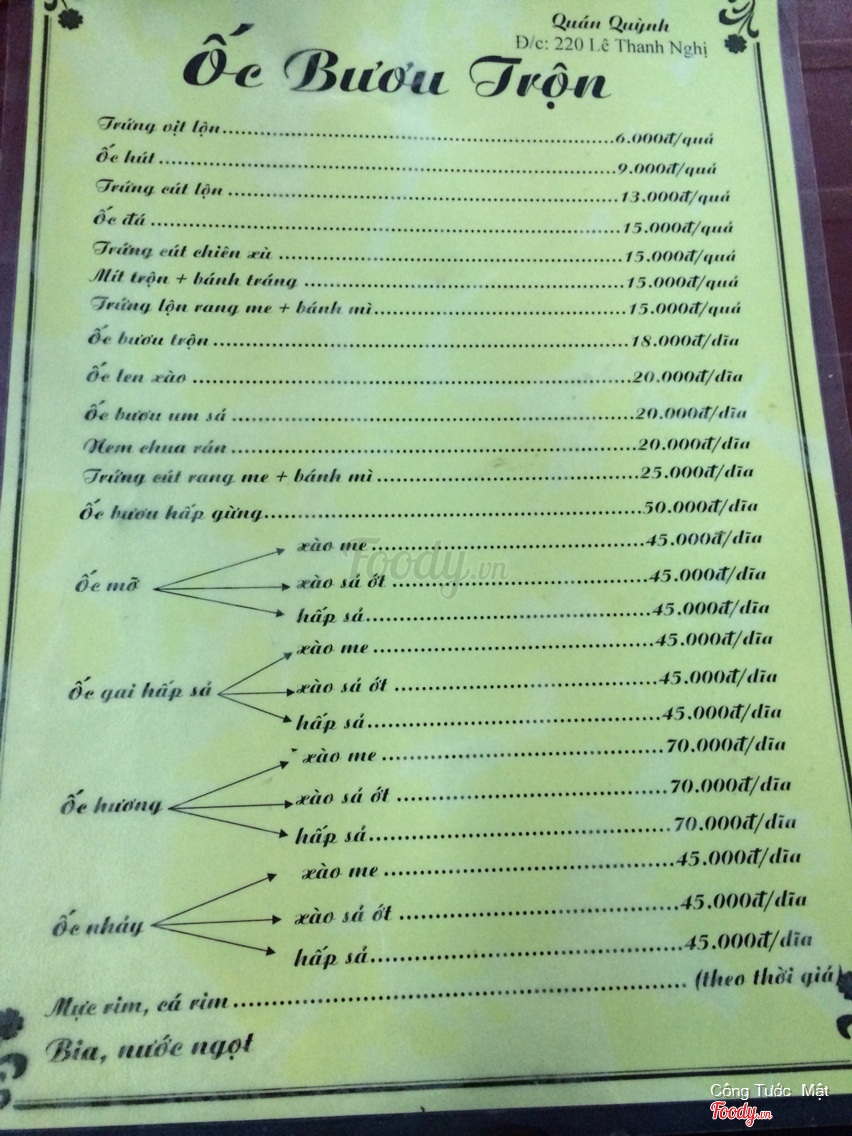 Quán Quỳnh
Đ/c: 220 Lê Thanh Nghị
Ốc Bươu Trộn
Trứng vịt lộn........6.000đ/quả
Ốc hút........9.000đ/quả
Trứng cút lộn........13.000đ/quả
Ốc đá........15.000đ/quả
Trứng cút chiên xù........15.000đ/quả
Mít trộn + bánh tráng........15.000đ/quả
Trứng lộn rang me + bánh mì........15.000đ/quả
Ốc bươu trộn........18.000đ/dĩa
Ốc len xào........20.000đ/dĩa
Ốc bươu um sả........20.000đ/dĩa
Nem chua rán........20.000đ/dĩa
Trứng cút rang me + bánh mì........25.000đ/dĩa
Ốc bươu hấp gừng........50.000đ/dĩa
xào me........45.000đ/dĩa
Ốc mỡ xào sả ớt........45.000đ/dĩa
hấp sả........45.000đ/dĩa
xào me........45.000đ/dĩa
Ốc gai hấp sả xào sả ớt........45.000đ/dĩa
hấp sả........45.000đ/dĩa
xào me........70.000đ/dĩa
Ốc hương xào sả ớt........70.000đ/dĩa
hấp sả........70.000đ/dĩa
xào me........45.000đ/dĩa
Ốc nhảy xào sả ớt........45.000đ/dĩa
hấp sả........45.000đ/dĩa
Mực rim, cá rim........(theo thời giá)
Bia, nước ngọt
Foody.vn
Công Tước Mật
Foody.vn